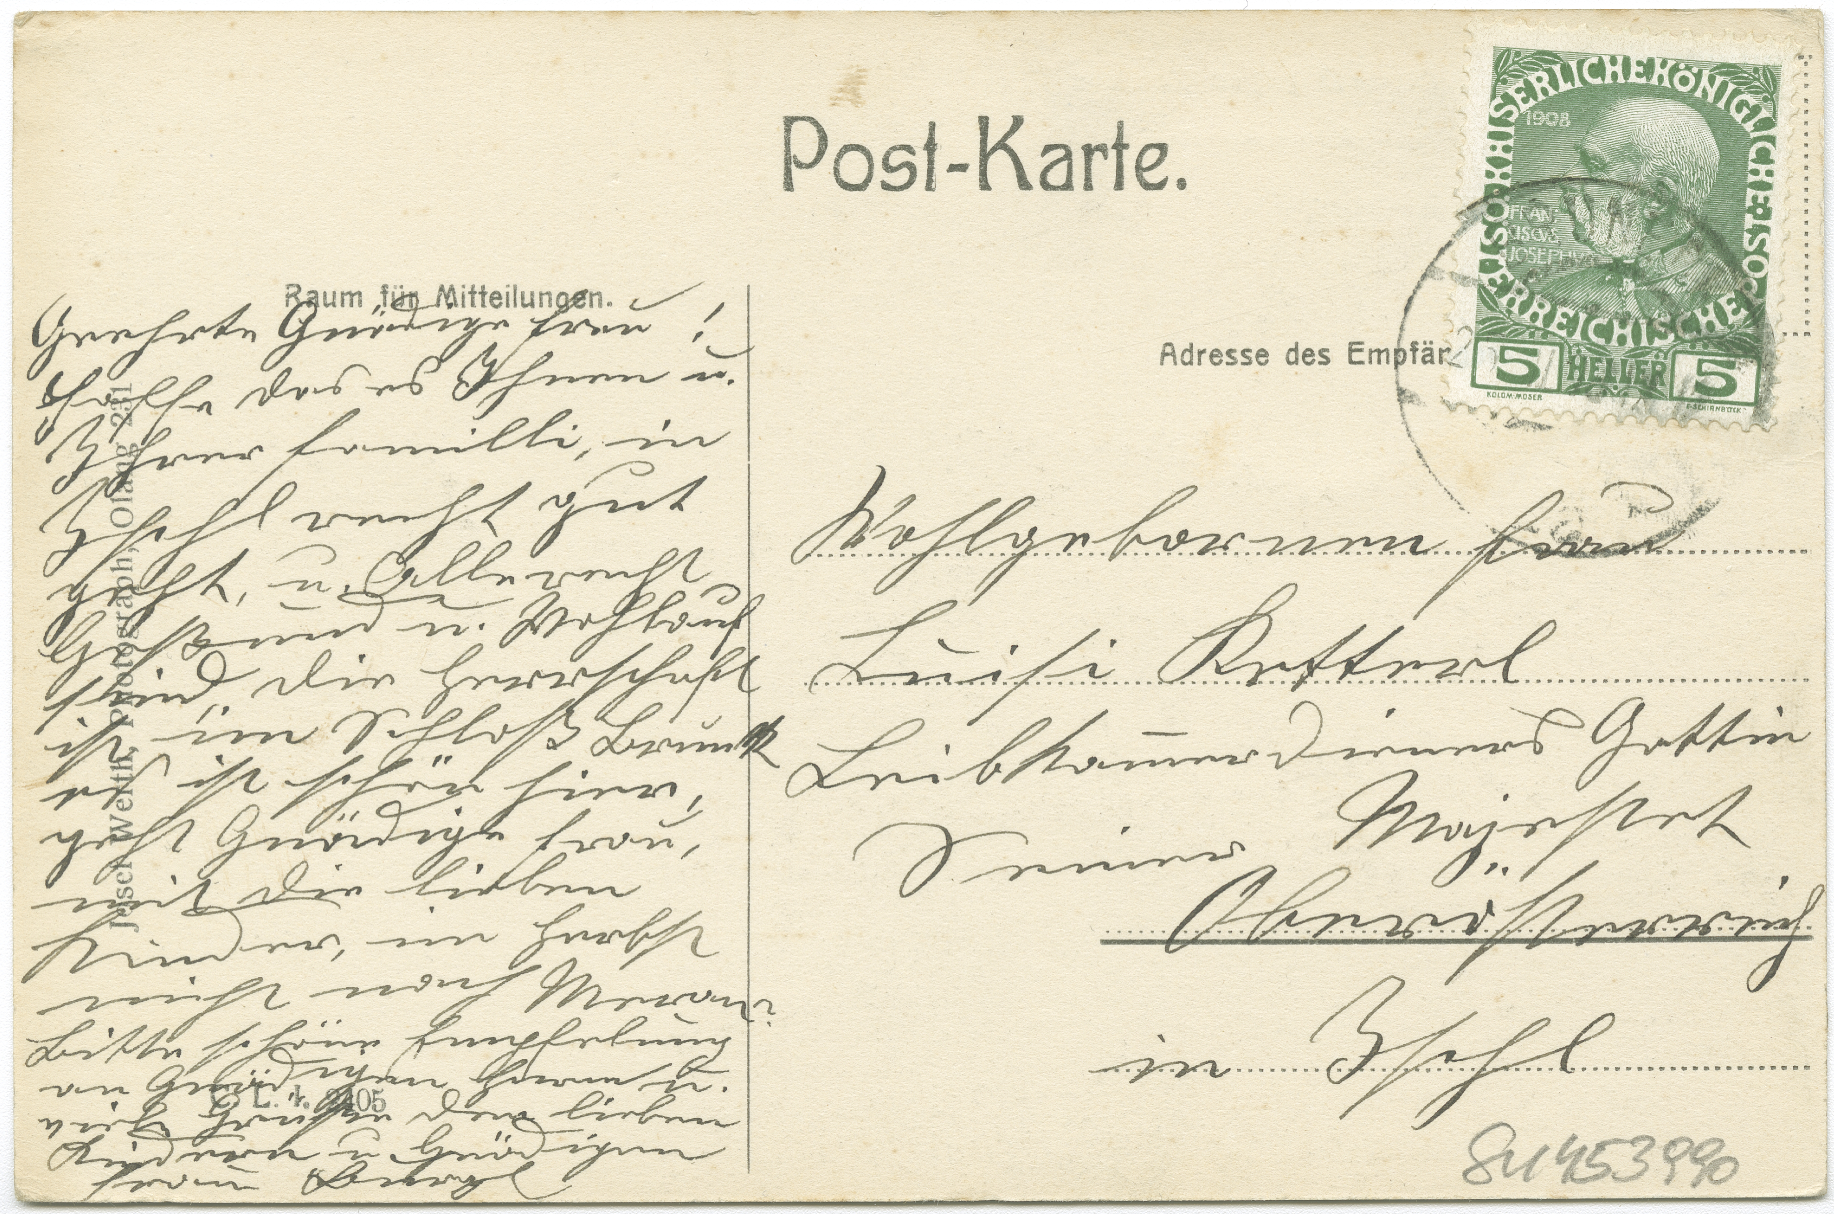 Post-Karte.
Raum für Mitteilungen.
Geehrte Gnädige Frau!
hoffe das es Ihnen u.
Ihrer Familli, in
Ischl recht gut
geht, u. Alle recht
Gesund u. Wohlauf
sind, die Herrschaft
ist im Schloß Bruneck
es ist schön hier,
geht Gnädige Frau,
mit die lieben
Kinder, im Herbst
nicht nach Meran?
Bitte schöne Empfelung
an Gnädigen Herrn u.
viele Grüße den lieben
Kindern u Gnädigen
Frau
Josef Werth, Photograph, Olang 231
C. L. J. 2405
Adresse des Empfän
KAISERLICHE KÖNIGLICHE ÖSTERREICHISCHE POST
1908
FRAN
CISCUS
JOSEPHVS I
5 HELLER 5
KOLOM·MOSER
Wohlgebornen Frau
Luisi Ketterl
Leibkammerdieners Gattin
Seiner Majestet
Oberösterreich
in Ischl
SU 453990